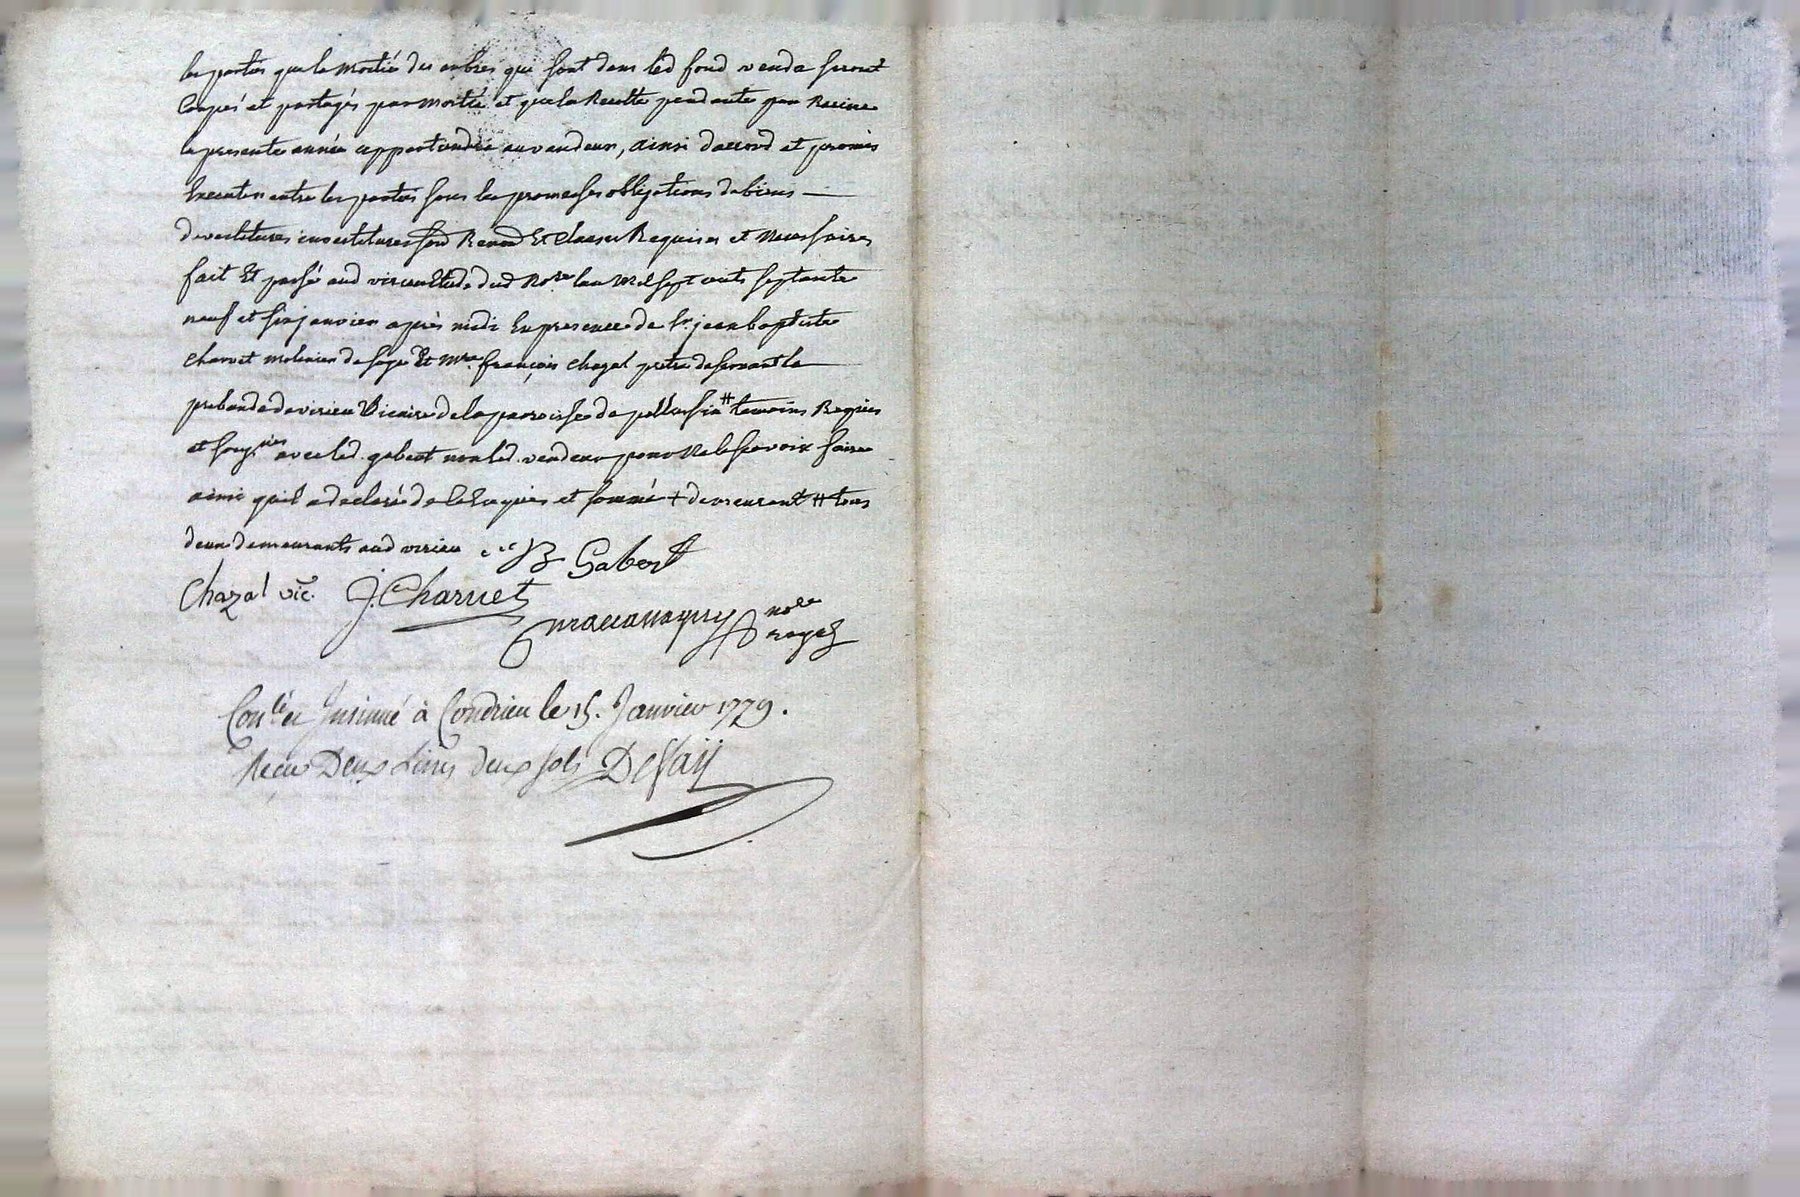 les parties que la moitié des arbres qui sont dans led fond vendu seront
coupés et partagés par moitié et que la Recolte pendante par Racine
la presente année appartiendra au vendeur, ainsi daccord et promis
Executer entre les parties sous les promesses obligations de biens —
devestitures investitures Renon Et clauses Requises et Necessaires
fait Et passé aud virieu Etude dud No.re lan Mil sept cents septante
neuf et six janvier après midi En presence de Sr. jean baptiste
charvet molinier de soye Et Mre. françois chazal pretre deservant la —
prebande de virieu Vicaire de la paroisse de pellussin # temoins Requis
et soussignes avec led. gabert non led. vendeur pour ne le scavoir faire
ainsi quil a declaré de ce Enquis et sommé + demeurant # tous
deux demeurants aud virieu B Gabert
Chazal vic. J. Charvet
nore
royal
Con.lé et Insinué à Condrieu le 15. Janvier 1779.
Reçu Deux Livres deux sols Defay